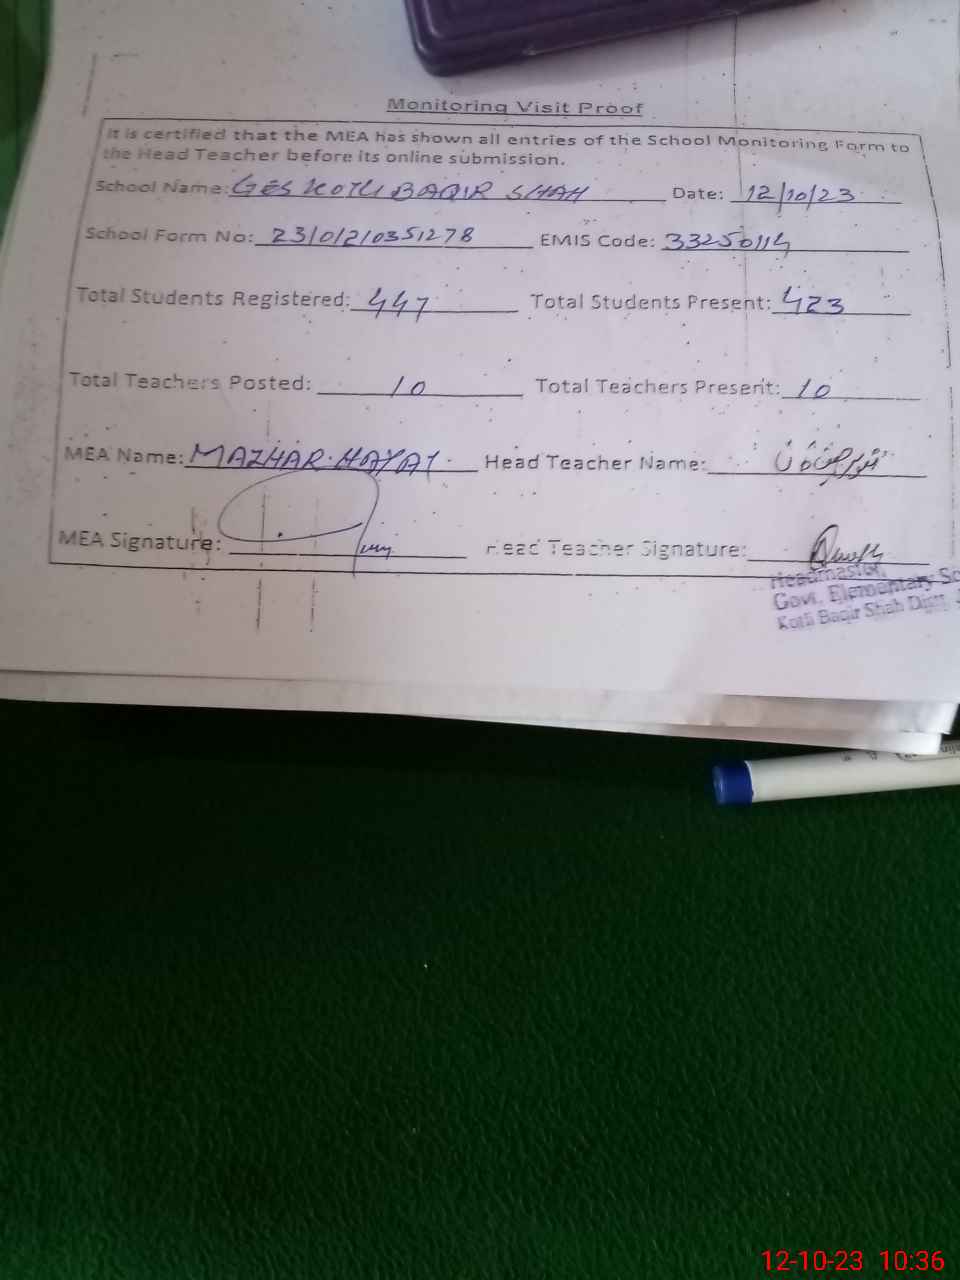 Monitoring Visit Proof
It is certified that the MEA has shown all entries of the School Monitoring Form to
the Head Teacher before its online submission.
School Name: GES KOTLI BAQIR SHAH Date: 12/10/23
School Form No: 23101210351278 EMIS Code: 33250114
Total Students Registered: 447 Total Students Present: 423
Total Teachers Posted: 10 Total Teachers Present: 10
MEA Name: MAZHAR HAYAT Head Teacher Name:
MEA Signature: Head Teacher Signature:
Headmaster,
Govt. Elementary Sc
Kotli Baqir Shah Distt.
12-10-23 10:36